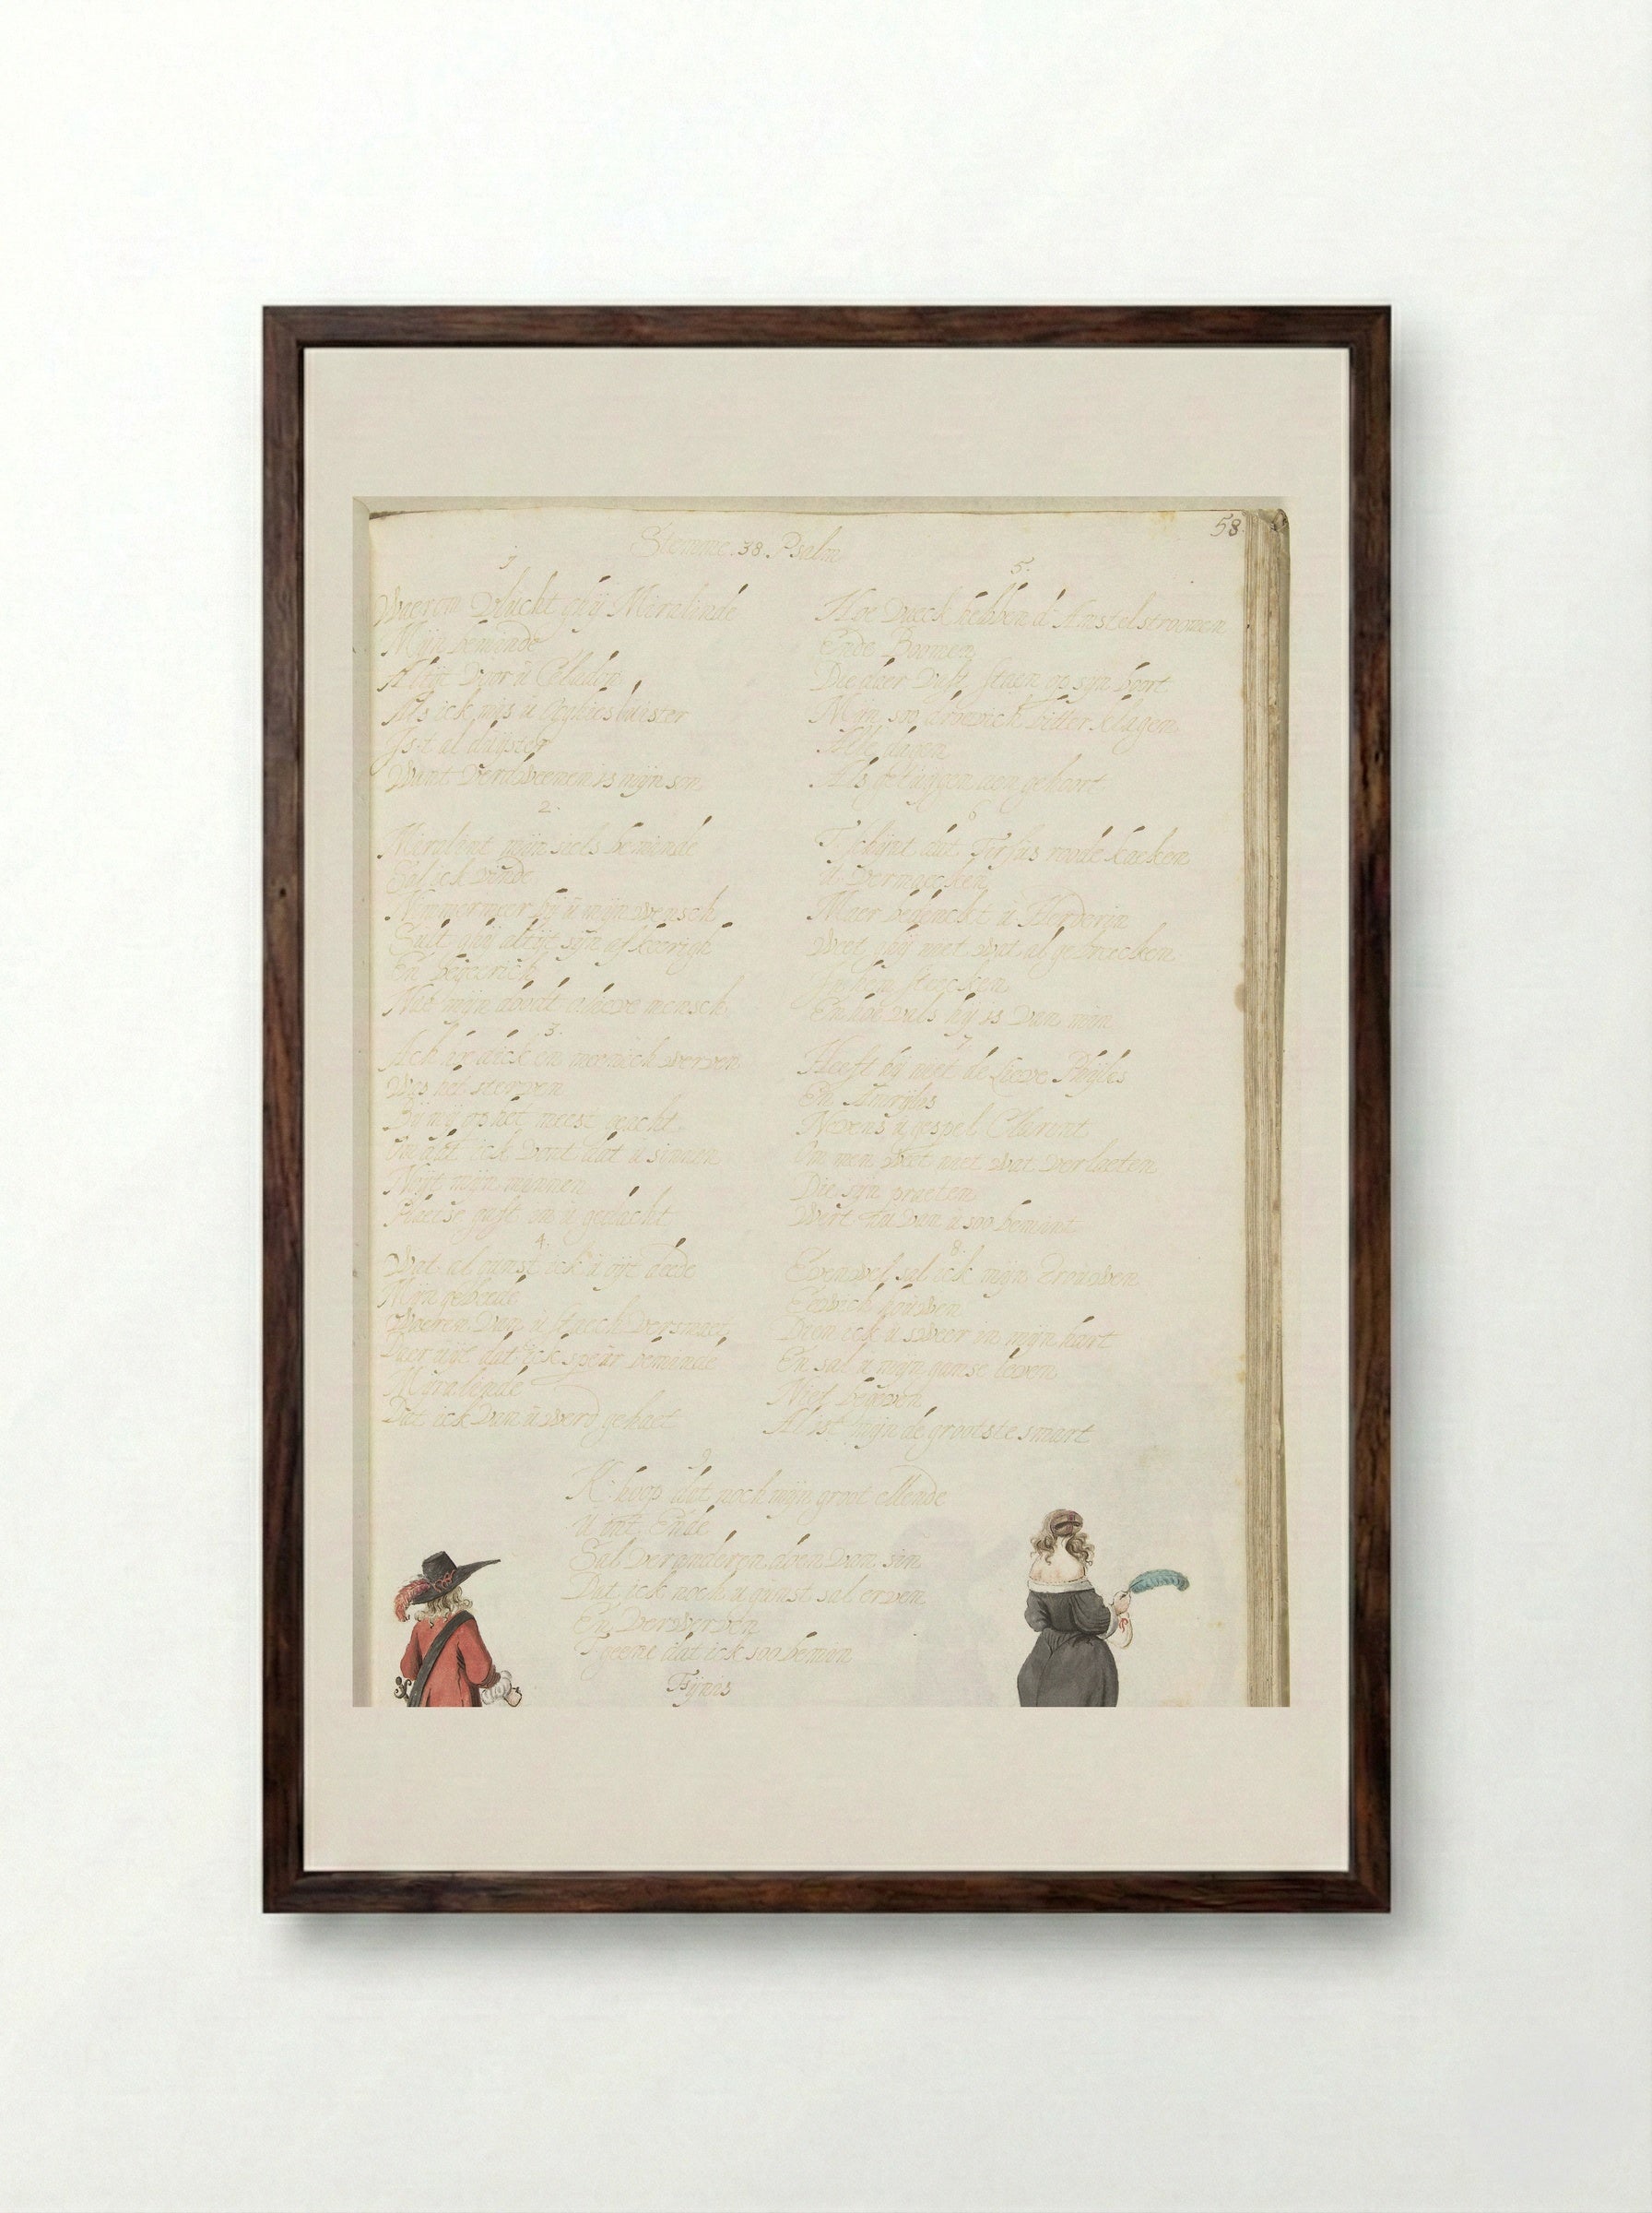 58.
Stemme .38. Psalm
1
Waerom Vlucht ghij Miralinde
Mijn beminde
Altijt Voor u Celadon
Als ick mis u Ooghies luijster
Js t al duijster
Want Verdweenen is mijn son
2.
Miralint mijn siels beminde
Sal ick vinde
Nimmermeer bij u mijn wensch
Sult ghij altijt sijn afkeerigh
En begeerich
Nae mijn doodt o lieve mensch
3.
Ach ick en
Was het sterven
Bij mij op het meest geacht
Omdat ick Vont dat u sinnen
Mijn minnen
Haetse gaft en u gedacht
4.
Wat al gunst ick u oijt dede
Mijn gebeede
Waeren Van u staech Versmaet
Daer uijt dat ick speur beminde
Miralinde
Dat ick Van u werd gehaet
5.
Hoe Vaeck hebben d' Amstelstroomen
Ende Boomen
Die daer Dicht staen op sijn boort
Mijn soo droevich bitter klagen
Alle dagen
Als getuijgen aen gehoort
6
T schijnt dat Tirsus roode kaeken
u Vermaecken
Maer bedenckt u Herderin
Weet ghij niet wat al gebreecken
steecken
En hoe Vals hij is Van min
7
Heeft hij niet de Lieve Phijlis
En Amarijlis
Nevens u gespeel Clarint
En men Weet niet wat Verlaeten
Die sijn praeten
Wert Van u soo bemint
8.
Evenwel sal ick mijn Trouwen
Eewich houwen
Dien ick u sweer in mijn hart
En sal u mijn ganse leeven
Niet begeven
Al ist mijn de grootste smart
9
K hoop dat noch mijn groot ellende
U int Ende
Sal Veranderen doen Van sin
Dat ick noch u gunst sal erven
En Verwerven
T geene dat ick soo bemin
Fijnis